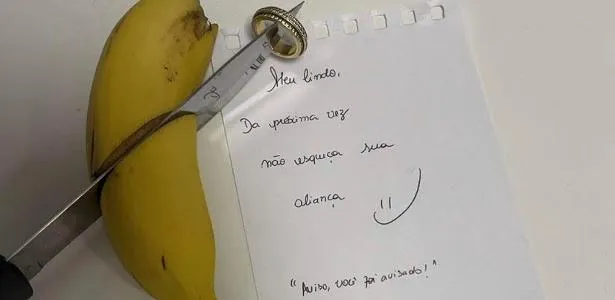 Meu lindo,
Da próxima vez
não esqueça sua
aliança
"Aviso, você foi avisado!"